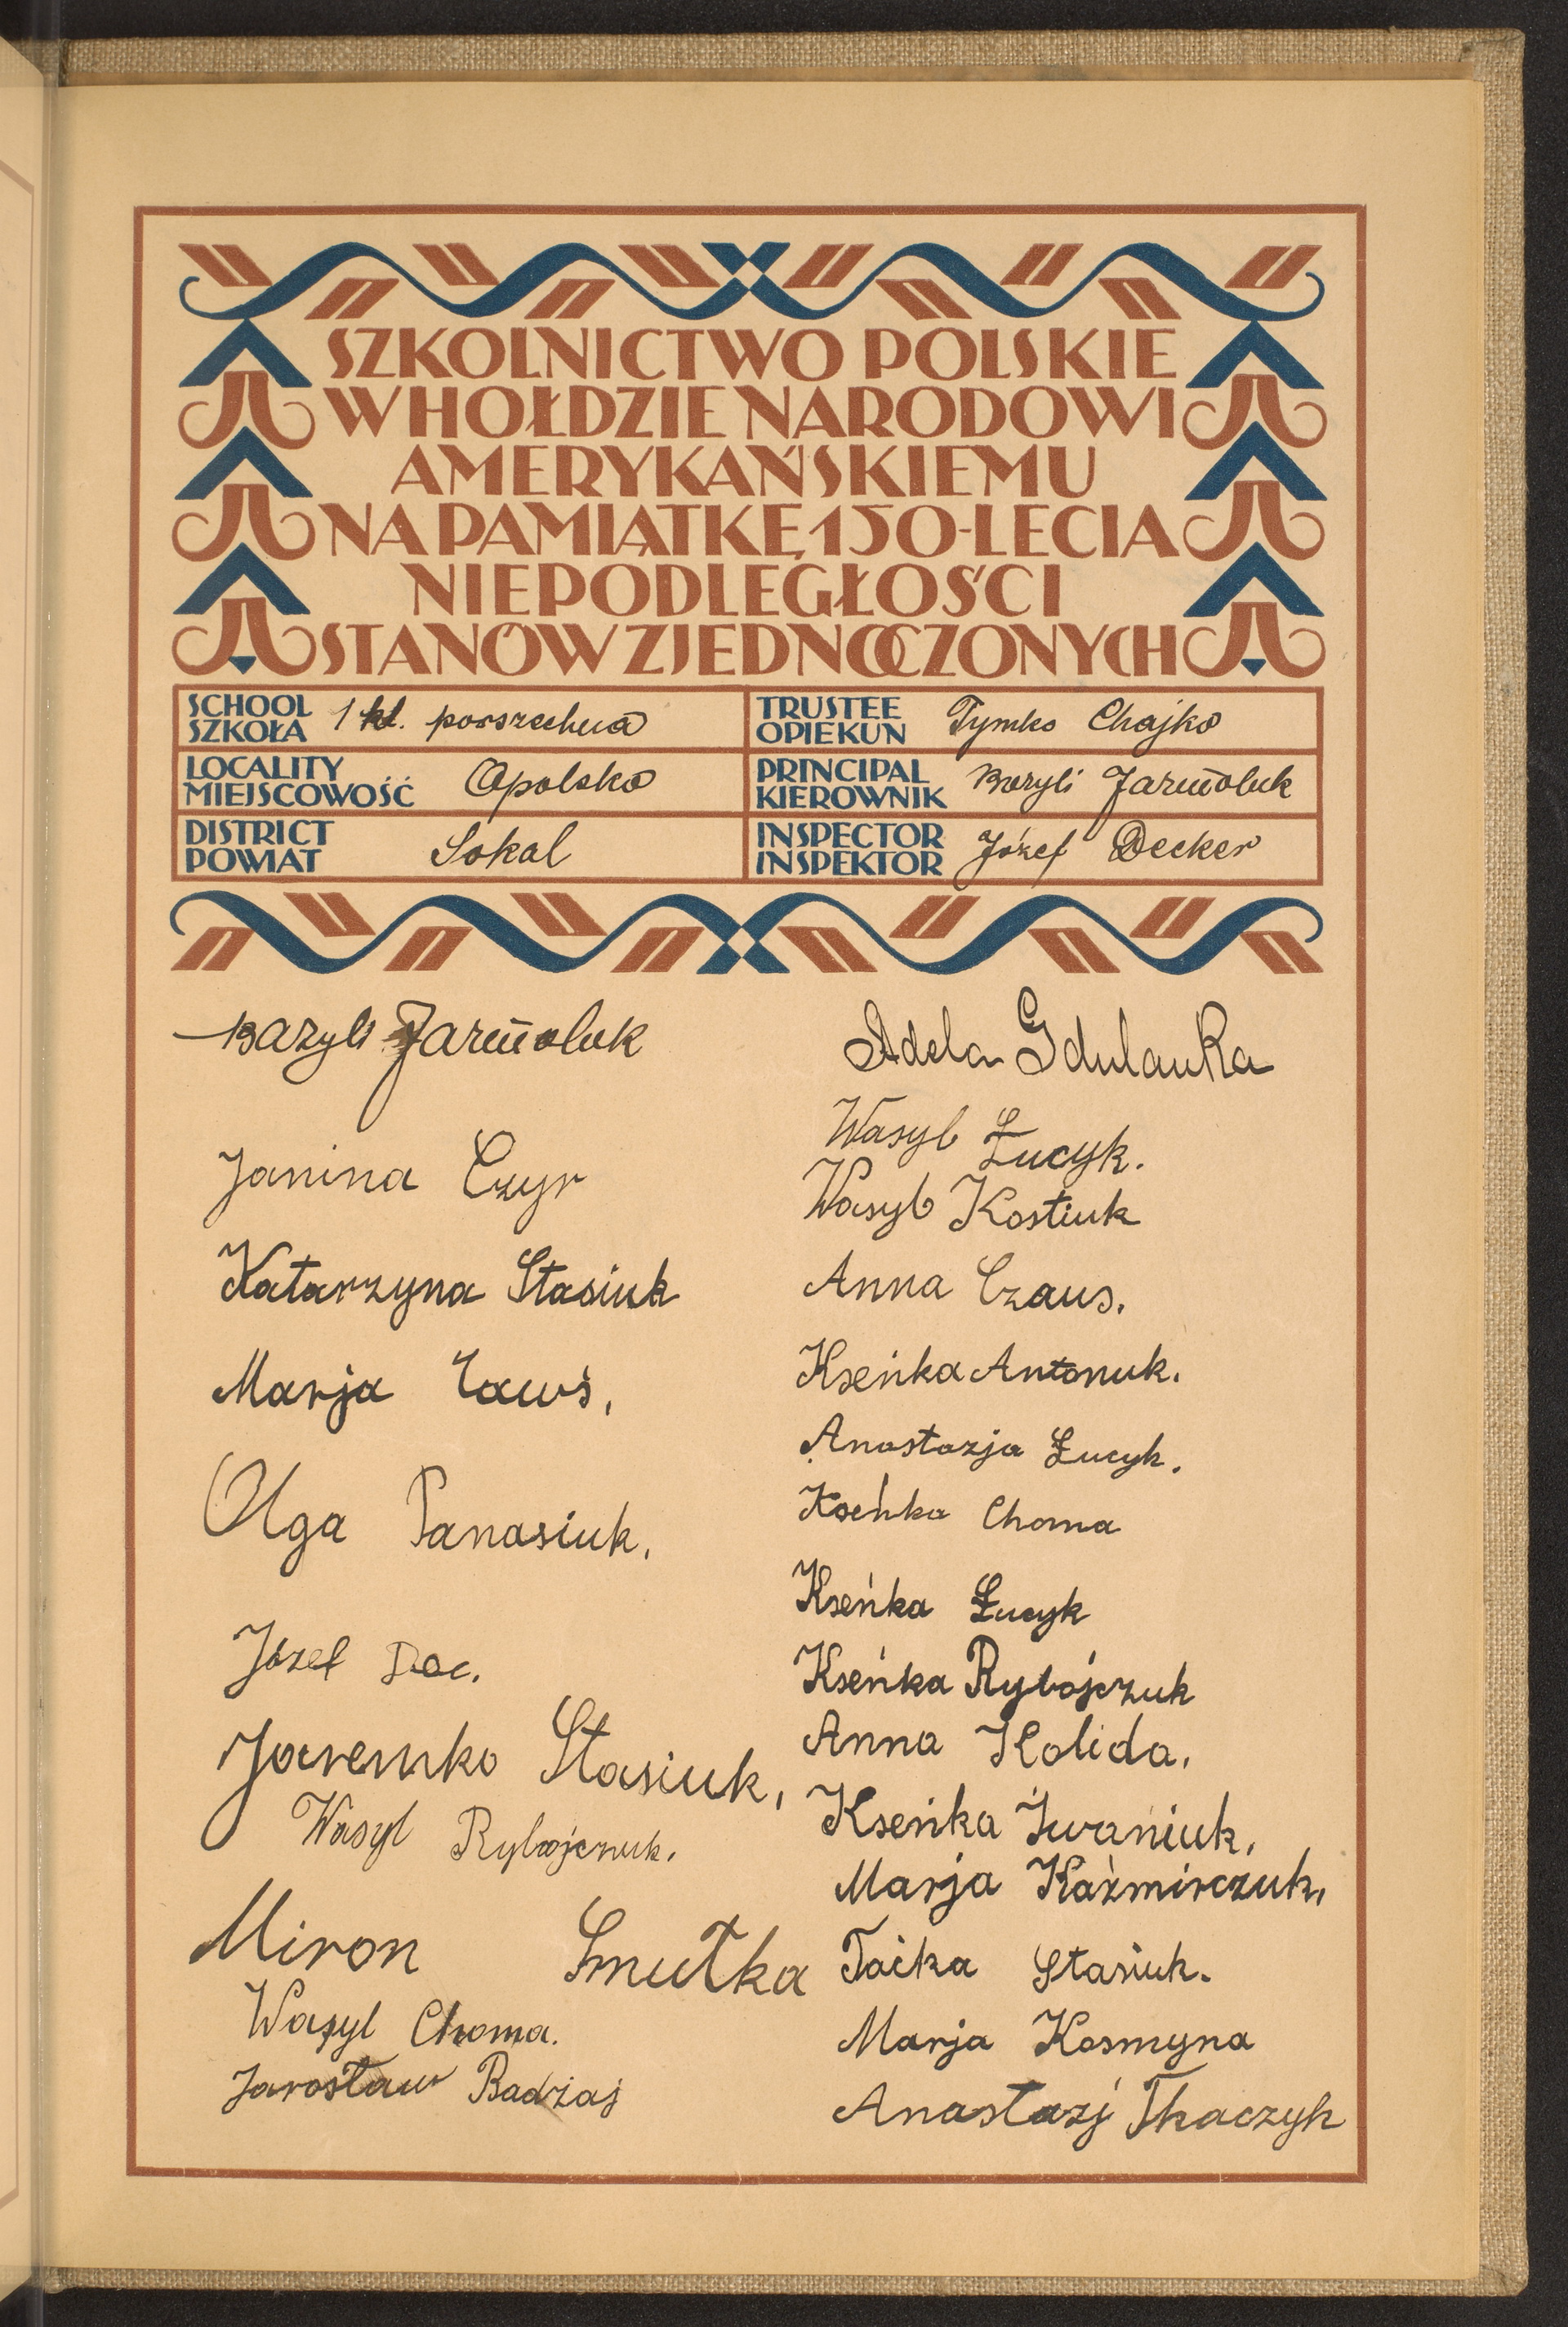 SZKOLNICTWO POLSKIE
W HOŁDZIE NARODOWI
AMERYKAŃSKIEMU
NA PAMIĄTKĘ 150-LECIA
NIEPODLEGŁOŚCI
STANÓW ZJEDNOCZONYCH
SCHOOL
SZKOŁA
1 kl. powszechna
TRUSTEE
OPIEKUN
Tymko Chajko
LOCALITY
MIEJSCOWOŚĆ
Opolsko
PRINCIPAL
KIEROWNIK
Bazyli Jarmoluk
DISTRICT
POWIAT
Sokal
INSPECTOR
INSPEKTOR
Józef Decker
Bazyli Jarmoluk
Janina Czyr
Katarzyna Stasiuk
Marja
Olga Panasiuk.
Józef Doc.
Jaremko Stasiuk,
Wasyl Rybojczuk.
Miron Smutka
Wasyl Choma.
Jarosław Badżaj
Adela Gdulanka
Wasyl Łucyk.
Wasyl Kostiuk
Anna Czaus.
Kseńka Antonuk.
Anastazja Łucyk.
Kseńka Choma
Kseńka Łucyk
Kseńka Rybojczuk
Anna Holida.
Kseńka Iwaniuk.
Marja Kaźmirczuk.
Taćka Stasiuk.
Marja Kosmyna
Anastazj Tkaczyk